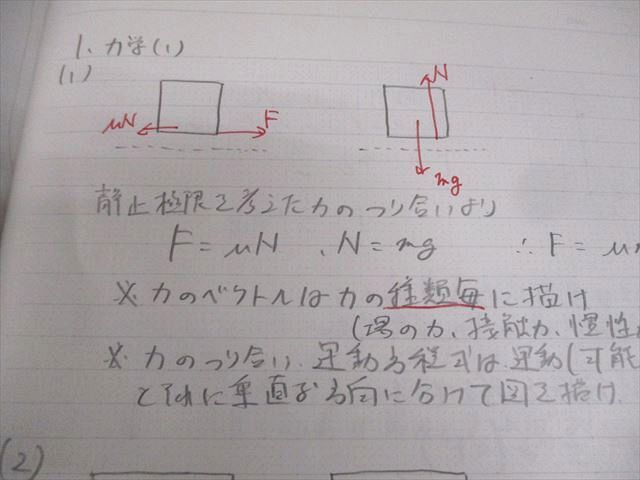 1. 力学(1)
(1)
μN
F
N
mg
静止極限で考えた力のつり合いより
F = μN 、N = mg ∴ F = μ
※ 力のベクトルは力の種類毎に描け
(場の力、接触力、慣性
※ 力のつり合い、運動方程式は、運動(可能
とそれに垂直な方向に分けて図を描け.
(2)